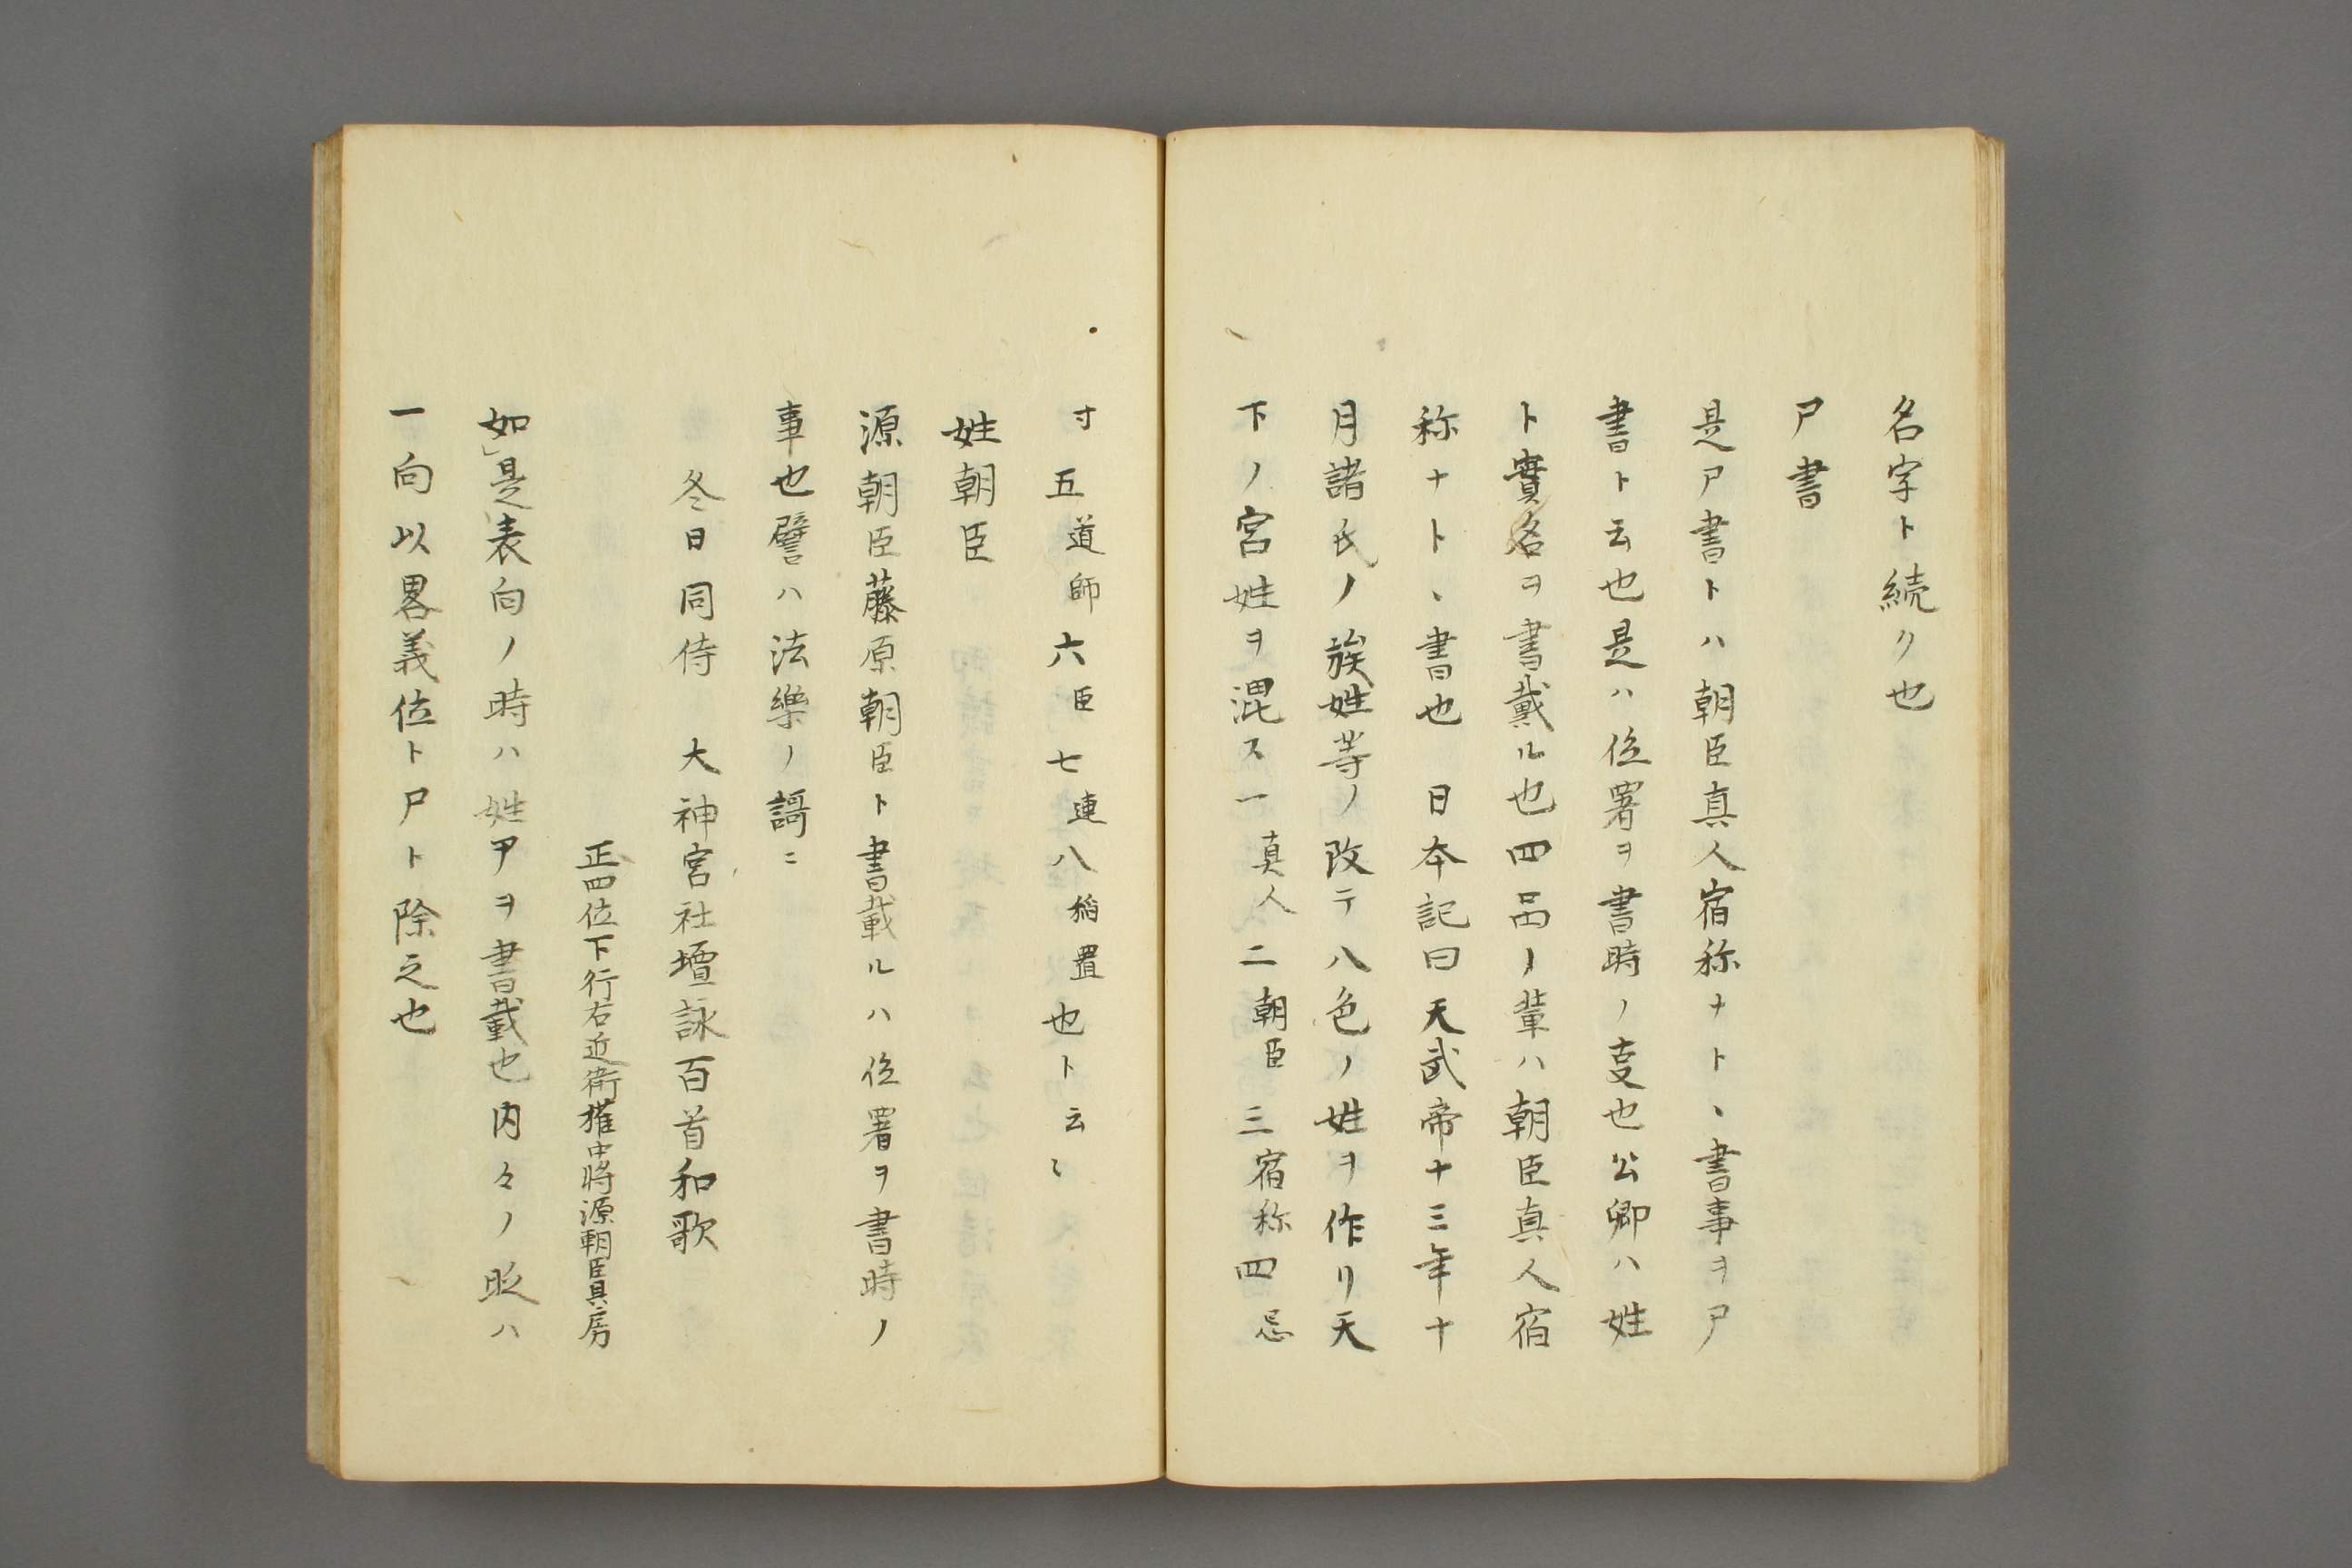 名字ト続ク也
尸書
是ア書トハ朝臣真人宿称ナト、書事ヲ尸
書ト云也是ハ位署ヲ書時ノ㕝也公卿ハ姓
ト實名ヲ書戴ル也四品ノ輩ハ朝臣真人宿
称ナト、書也　日本記曰天武帝十三年十
月諸氏ノ族姓等ノ改テ八色ノ姓ヲ作リ天
下ノ宮姓ヲ混ス一真人二朝臣三宿称四忌
寸五道師六臣七連八稲置也ト云〻
姓朝臣
源朝臣藤原朝臣ト書載ルハ位署ヲ書時ノ
事也譬ハ法樂ノ謌ニ
冬日同侍　大神宮社壇詠百首和歌
正四位下行右近衛権中将源朝臣具房
如是表向ノ時ハ姓尸ヲ書載也内々ノ时ハ
一向以畧義位ト尸ト除之也